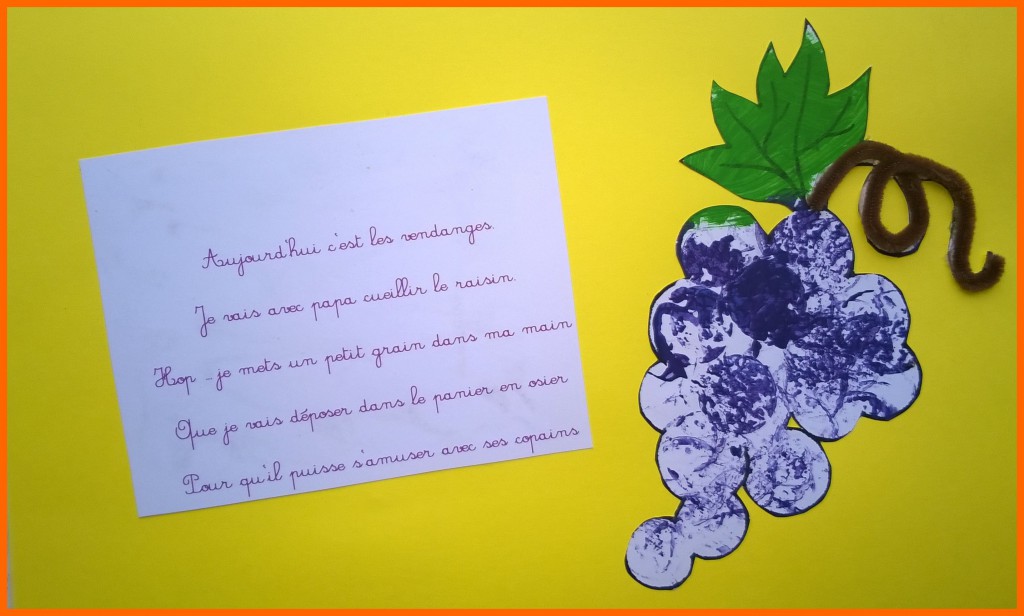 Aujourd'hui c'est les vendanges.
Je vais avec papa cueillir le raisin.
Hop - je mets un petit grain dans ma main
Que je vais déposer dans le panier en osier
Pour qu'il puisse s'amuser avec ses copains